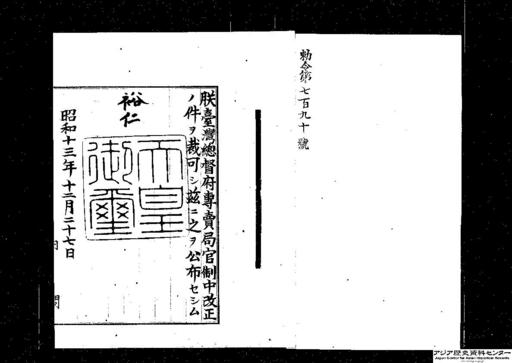 勅令第七百九十號
朕臺灣總督府專賣局官制中改正
ノ件ヲ裁可シ茲ニ之ヲ公布セシム
裕仁
天皇御璽
昭和十三年十二月二十七日
アジア歴史資料センター
Japan Center for Asian Historical Records